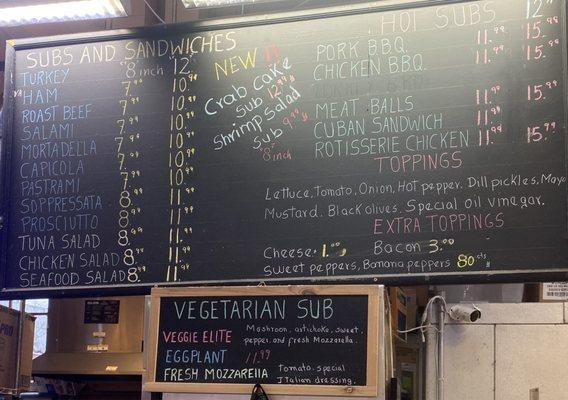 SUBS AND SANDWICHES
8 inch 12"
TURKEY 7.99 10.99
HAM 7.99 10.99
ROAST BEEF 7.99 10.99
SALAMI 7.99 10.99
MORTADELLA 7.99 10.99
CAPICOLA 7.99 10.99
PASTRAMI 7.99 10.99
SOPPRESSATA 8.99 11.99
PROSCIUTTO 8.99 11.99
TUNA SALAD 8.99 11.99
CHICKEN SALAD 8.99 11.99
SEAFOOD SALAD 8.99 11.99
NEW !!
Crab Cake
Sub 12.99
Shrimp Salad
Sub 9.99
8" inch
HOT SUBS 12"
PORK BBQ. 11.99 15.99
CHICKEN BBQ. 11.99 15.99
MEAT BALLS 11.99 15.99
CUBAN SANDWICH 11.99
ROTISSERIE CHICKEN 11.99 15.99
TOPPINGS
Lettuce, Tomato, Onion, Hot pepper. Dill pickles, Mayo
Mustard. Black olives. Special oil vinegar.
EXTRA TOPPINGS
Cheese. 1.00 Bacon 3.00
Sweet peppers, Banana peppers 80 cts
VEGETARIAN SUB
VEGGIE ELITE Mashroon, artichoke, sweet,
pepper, and fresh Mozzarella.
EGGPLANT 11.99
FRESH MOZZARELLA Tomato, special
Italian dressing.